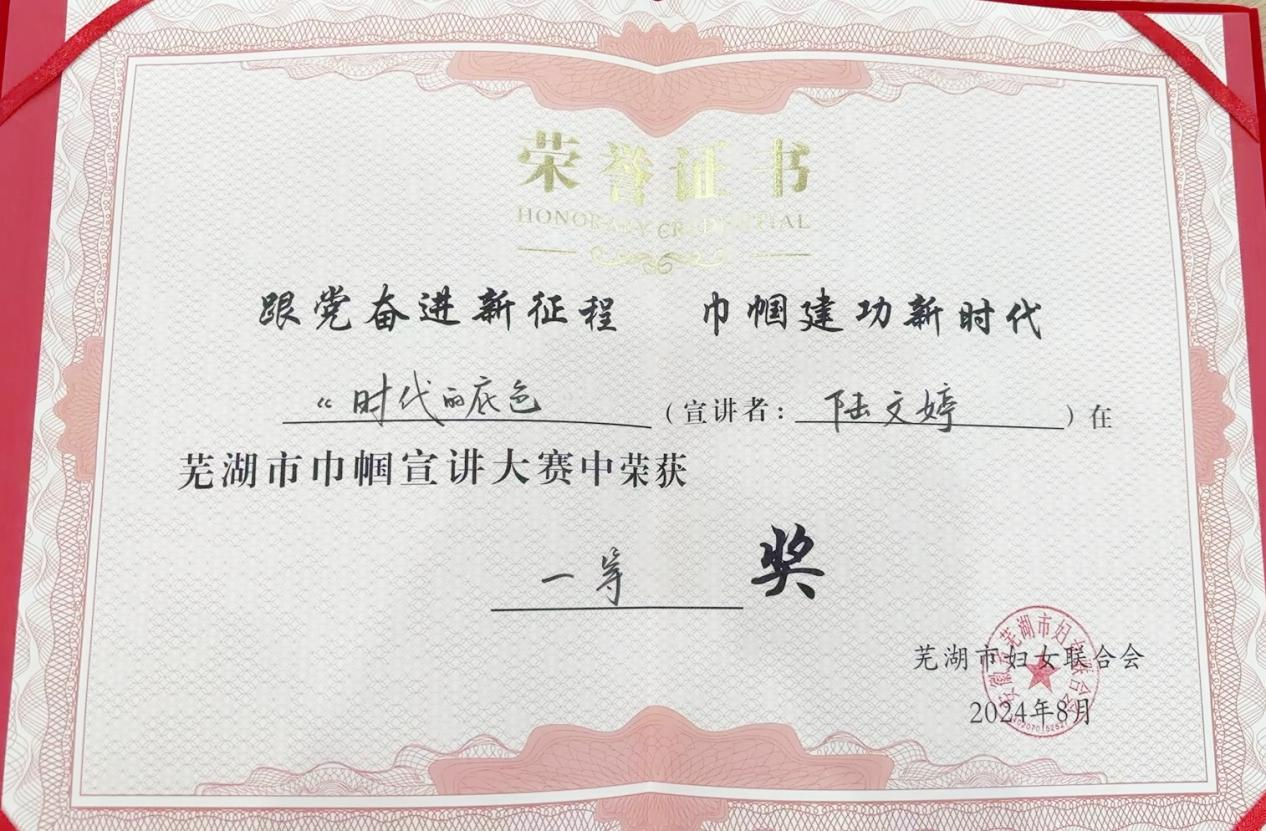 荣誉证书
HONORARY CREDENTIAL
跟党奋进新征程 巾帼建功新时代
《时代的底色 （宣讲者：陆文婷）在
芜湖市巾帼宣讲大赛中荣获
一等奖
芜湖市妇女联合会
2024年8月
安徽省芜湖市妇女联合会